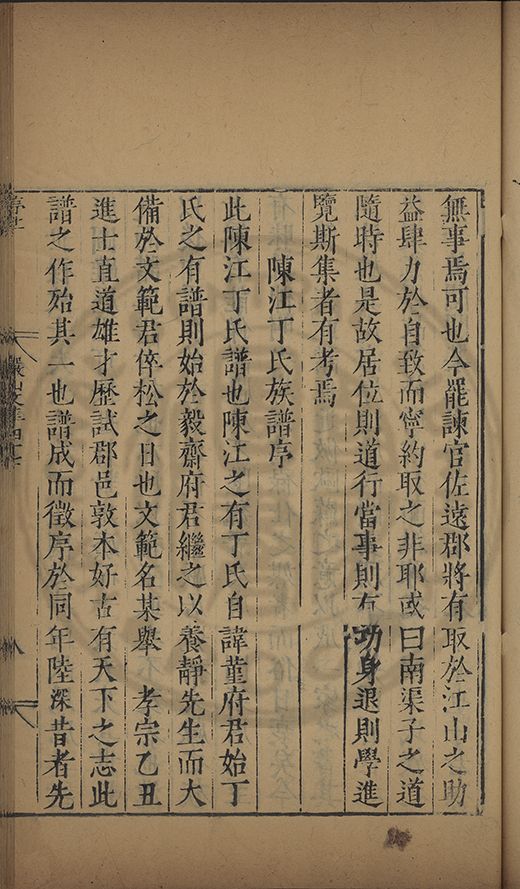 無事焉可也今罷諫官佐遠郡將有取於江山之助
益肆力於自致而寧約取之非耶或曰南渠子之道
隨時也是故居位則道行當事則有功身退則學進
覽斯集者有考焉
陳江丁氏族譜序
此陳江丁氏譜也陳江之有丁氏自諱菫府君始丁
氏之有譜則始於毅齋府君繼之以養靜先生而大
備於文範君倅松之日也文範名某舉孝宗乙丑
進士直道雄才歷試郡邑敦本好古有天下之志此
譜之作殆其一也譜成而徵序於同年陸深昔者先